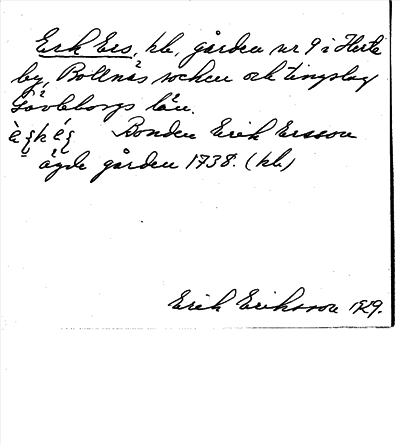 Erik Ers, kb., gården nr 9 i Herte
by, Bollnäs socken och tingslag
Gävleborgs län.
Bonden Erik Ersson
ägde gården 1738. (kb.)
Erik Eriksson 1929.